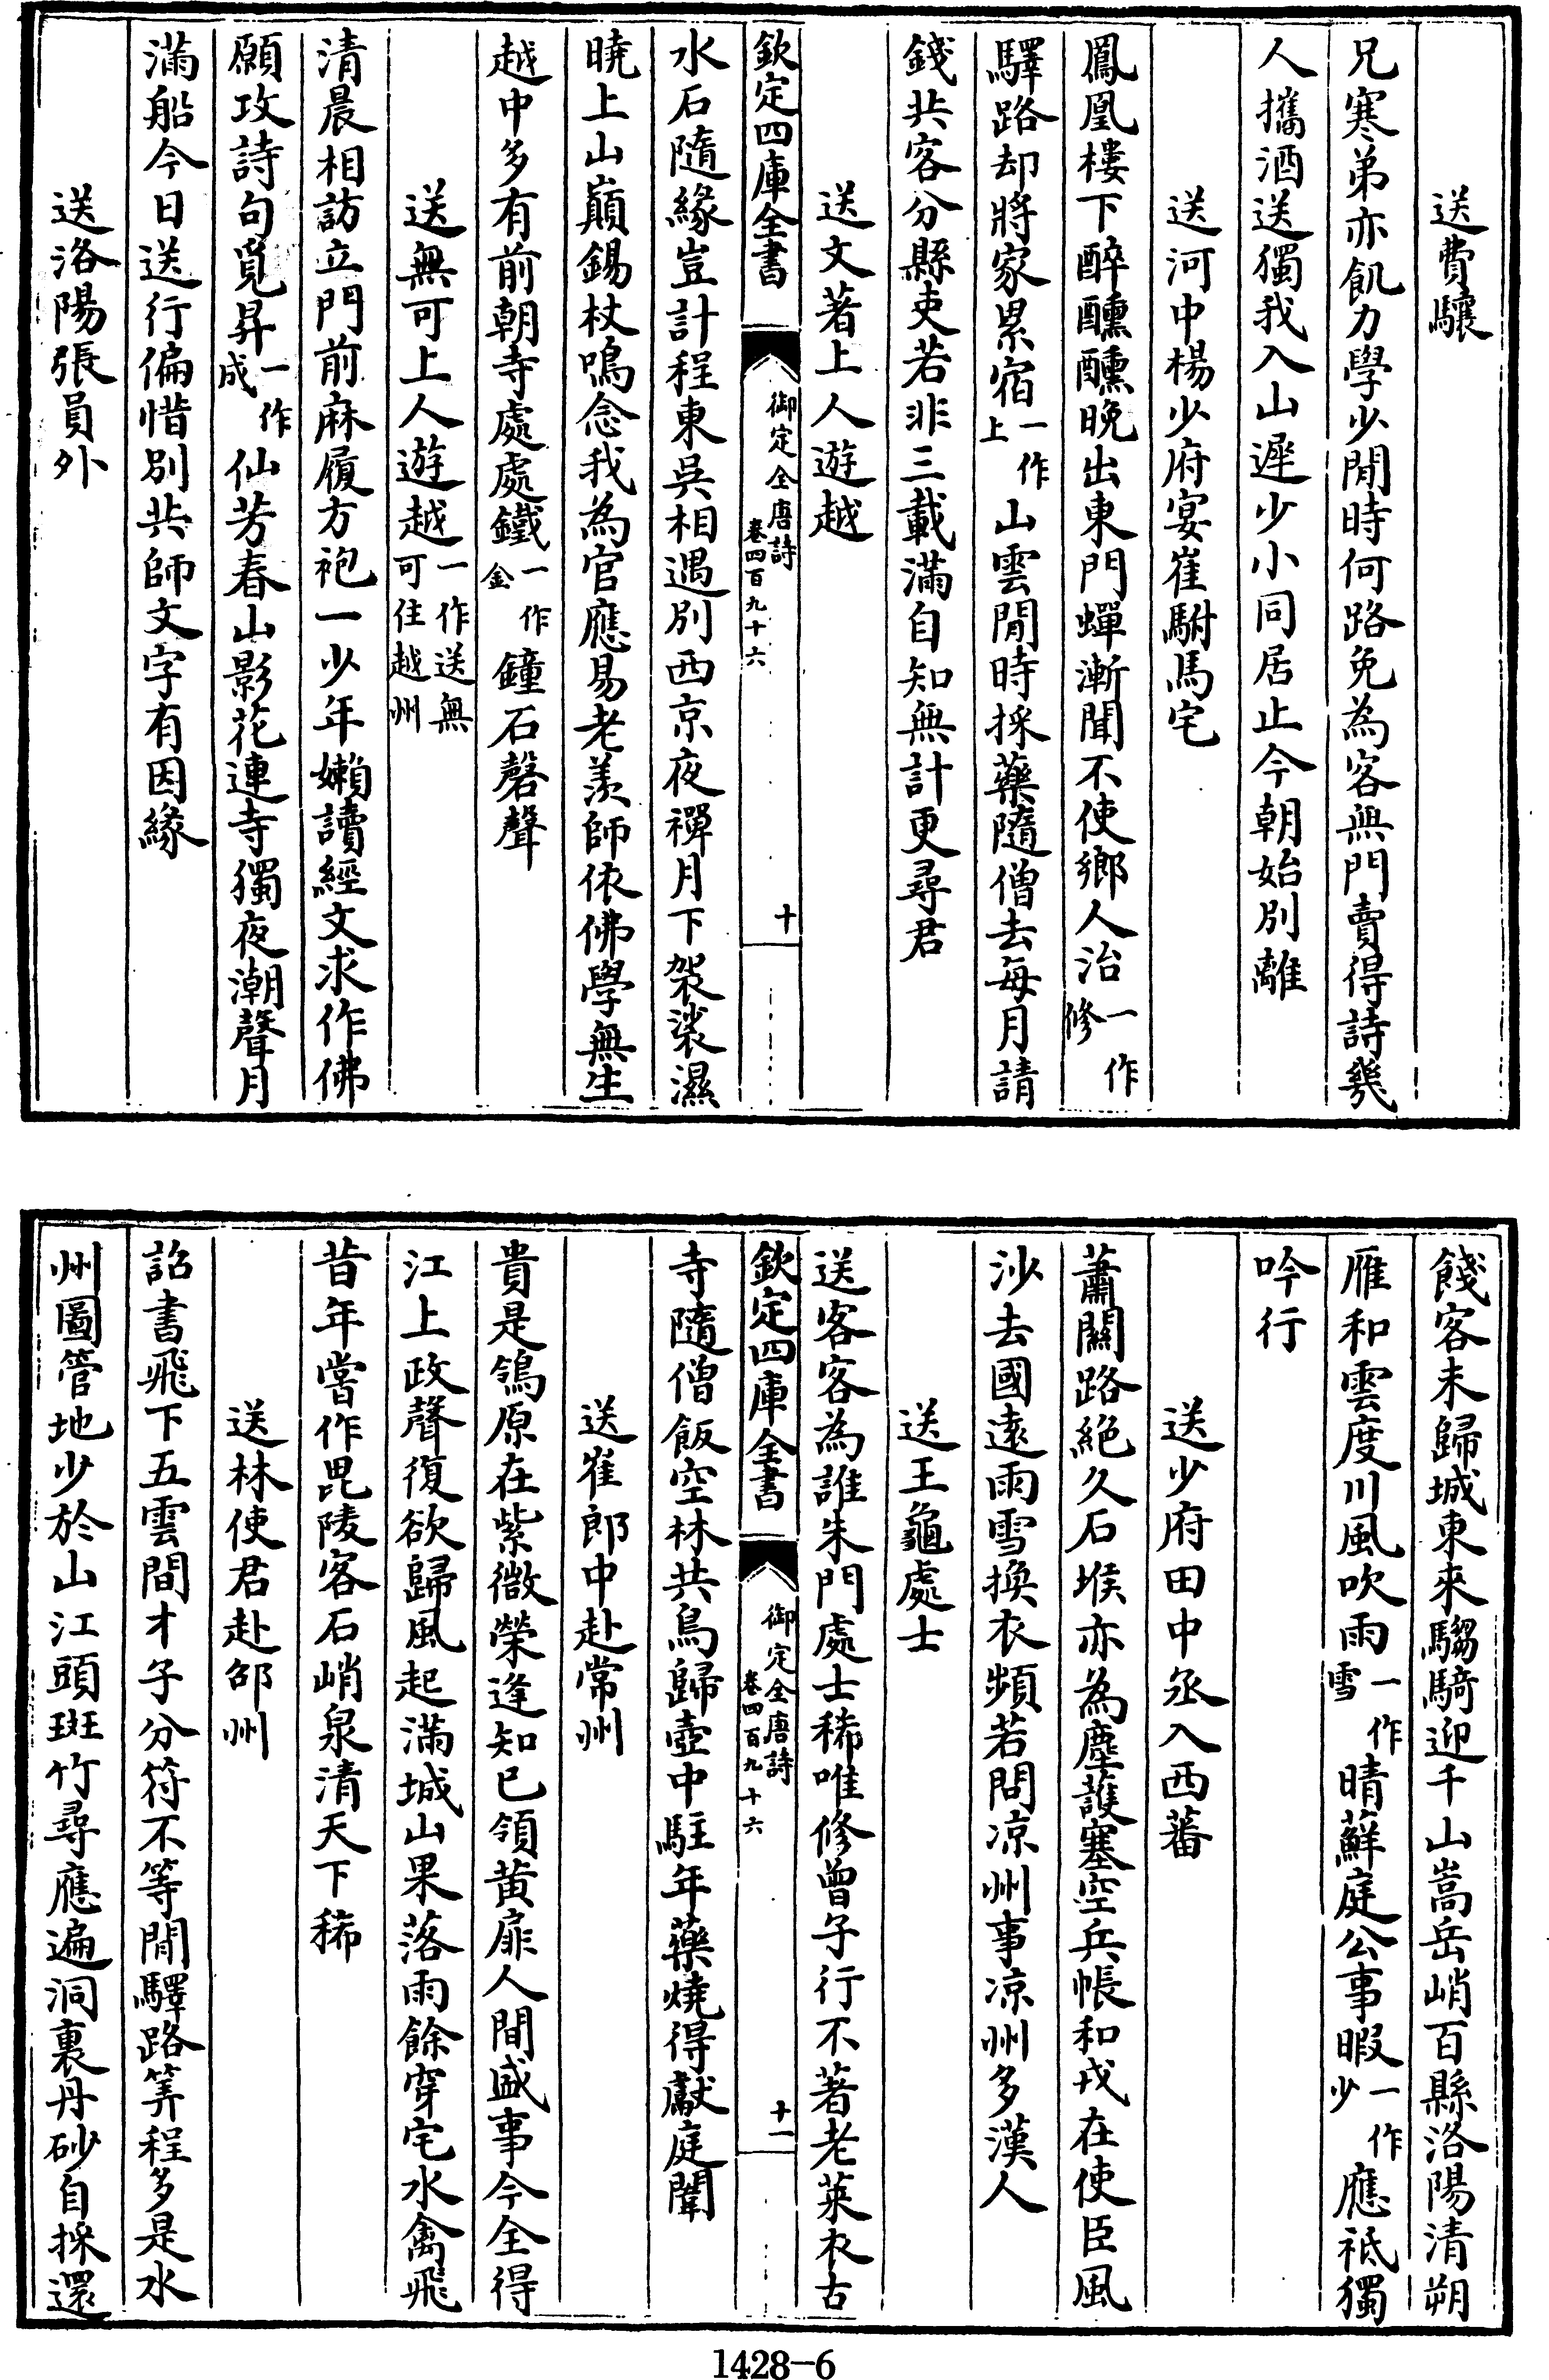 送費驤
兄寒弟亦飢力學少閒時何路免為客無門賣得詩幾
人攜酒送獨我入山遲少小同居止今朝始別離
送河中楊少府宴崔駙馬宅
鳳凰樓下醉醺醺晚出東門蟬漸聞不使鄉人治一作修
驛路却將家累宿一作上山雲閒時採藥隨僧去每月請
錢共客分縣吏若非三載滿自知無計更尋君
送文著上人遊越
欽定四庫全書 御定全唐詩 卷四百九十六 十
水石隨緣豈計程東吳相遇別西京夜禪月下袈裟濕
曉上山巔錫杖鳴念我為官應易老羨師依佛學無生
越中多有前朝寺處處鐵一作金鐘石磬聲
送無可上人遊越一作送無可住越州
清晨相訪立門前麻履方袍一少年嬾讀經文求作佛
願攻詩句覓昇一作成仙芳春山影花連寺獨夜潮聲月
滿船今日送行偏惜別共師文字有因緣
送洛陽張員外
餞客未歸城東來騶騎迎千山嵩岳峭百縣洛陽清朔
雁和雲度川風吹雨一作雪晴蘚庭公事暇一作少應祗獨
吟行
送少府田中丞入西蕃
蕭關路絕久石堠亦為塵護塞空兵帳和戎在使臣風
沙去國遠雨雪換衣頻若問凉州事凉州多漢人
送王龜處士
送客客為誰朱門處士稀唯修曾子行不著老萊衣古
欽定四庫全書 御定全唐詩 卷四百九十六 十一
寺隨僧飯空林共鳥歸壺中駐年藥燒得獻庭闈
送崔郎中赴常州
貴是鴒原在紫微榮逢知已領黄扉人間盛事今全得
江上政聲復欲歸風起滿城山果落雨餘穿宅水禽飛
昔年嘗作毘陵客石峭泉清天下稀
送林使君赴邵州
詔書飛下五雲間才子分符不等閒驛路筭程多是水
州圖管地少於山江頭斑竹尋應遍洞裏丹砂自採還
1428-6